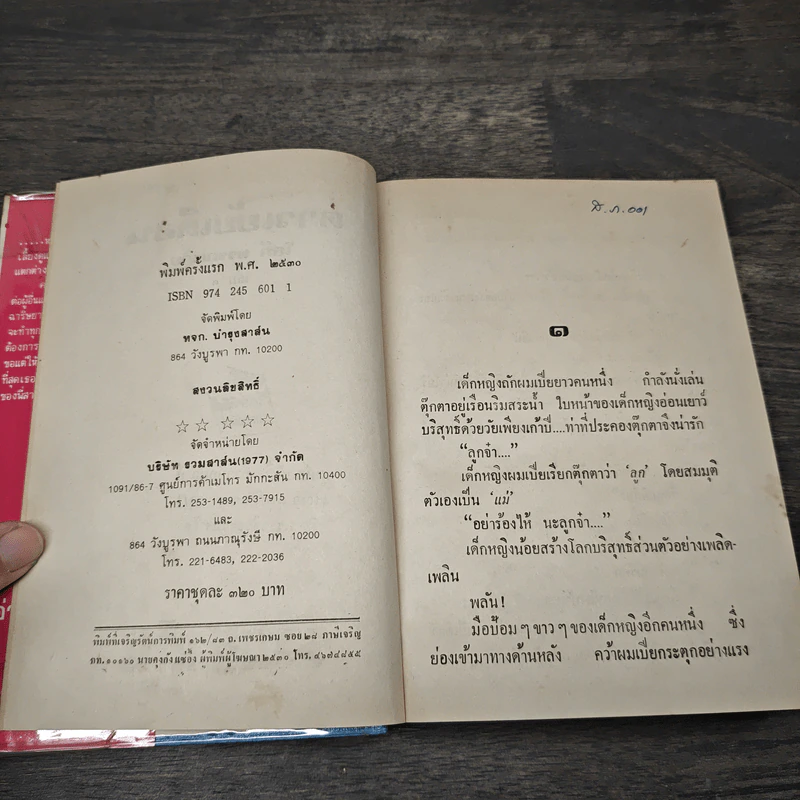 พิมพ์ครั้งแรก พ.ศ. ๒๕๓๐
ISBN 974 245 601 1
จัดพิมพ์โดย
หจก. บำรุงสาส์น
864 วังบูรพา กท. 10200
สงวนลิขสิทธิ์
☆ ☆ ☆ ☆ ☆
จัดจำหน่ายโดย
บริษัท รวมสาส์น(1977) จำกัด
1091/86-7 ศูนย์การค้าเมโทร มักกะสัน กท. 10400
โทร. 253-1489, 253-7915
และ
864 วังบูรพา ถนนภาณุรังษี กท. 10200
โทร. 221-6483, 222-2036
ราคาชุดละ ๓๒๐ บาท
พิมพ์ที่เจริญรัตน์การพิมพ์ ๑๖๒/๘๓ ถ. เพชรเกษม ซอย ๒๘ ภาษีเจริญ
กท. ๑๐๑๖๐ นายคุงกัง แซ่อึ้ง ผู้พิมพ์ผู้โฆษณา ๒๕๓๐ โทร. ๔๖๗๔๘๕๕
๑
เด็กหญิงถักผมเปียยาวคนหนึ่ง กำลังนั่งเล่น
ตุ๊กตาอยู่เรือนริมสระน้ำ ใบหน้าของเด็กหญิงอ่อนเยาว์
บริสุทธิ์ด้วยวัยเพียงเก้าปี....ท่าที่ประคองตุ๊กตาจึงน่ารัก
“ลูกจ๋า....”
เด็กหญิงผมเปียเรียกตุ๊กตาว่า ‘ลูก’ โดยสมมุติ
ตัวเองเป็น ‘แม่’
“อย่าร้องไห้ นะลูกจ๋า....”
เด็กหญิงน้อยสร้างโลกบริสุทธิ์ส่วนตัวอย่างเพลิด-
เพลิน
พลัน!
มือป้อม ๆ ขาว ๆ ของเด็กหญิงอีกคนหนึ่ง ซึ่ง
ย่องเข้ามาทางด้านหลัง คว้าผมเปียกระตุกอย่างแรง